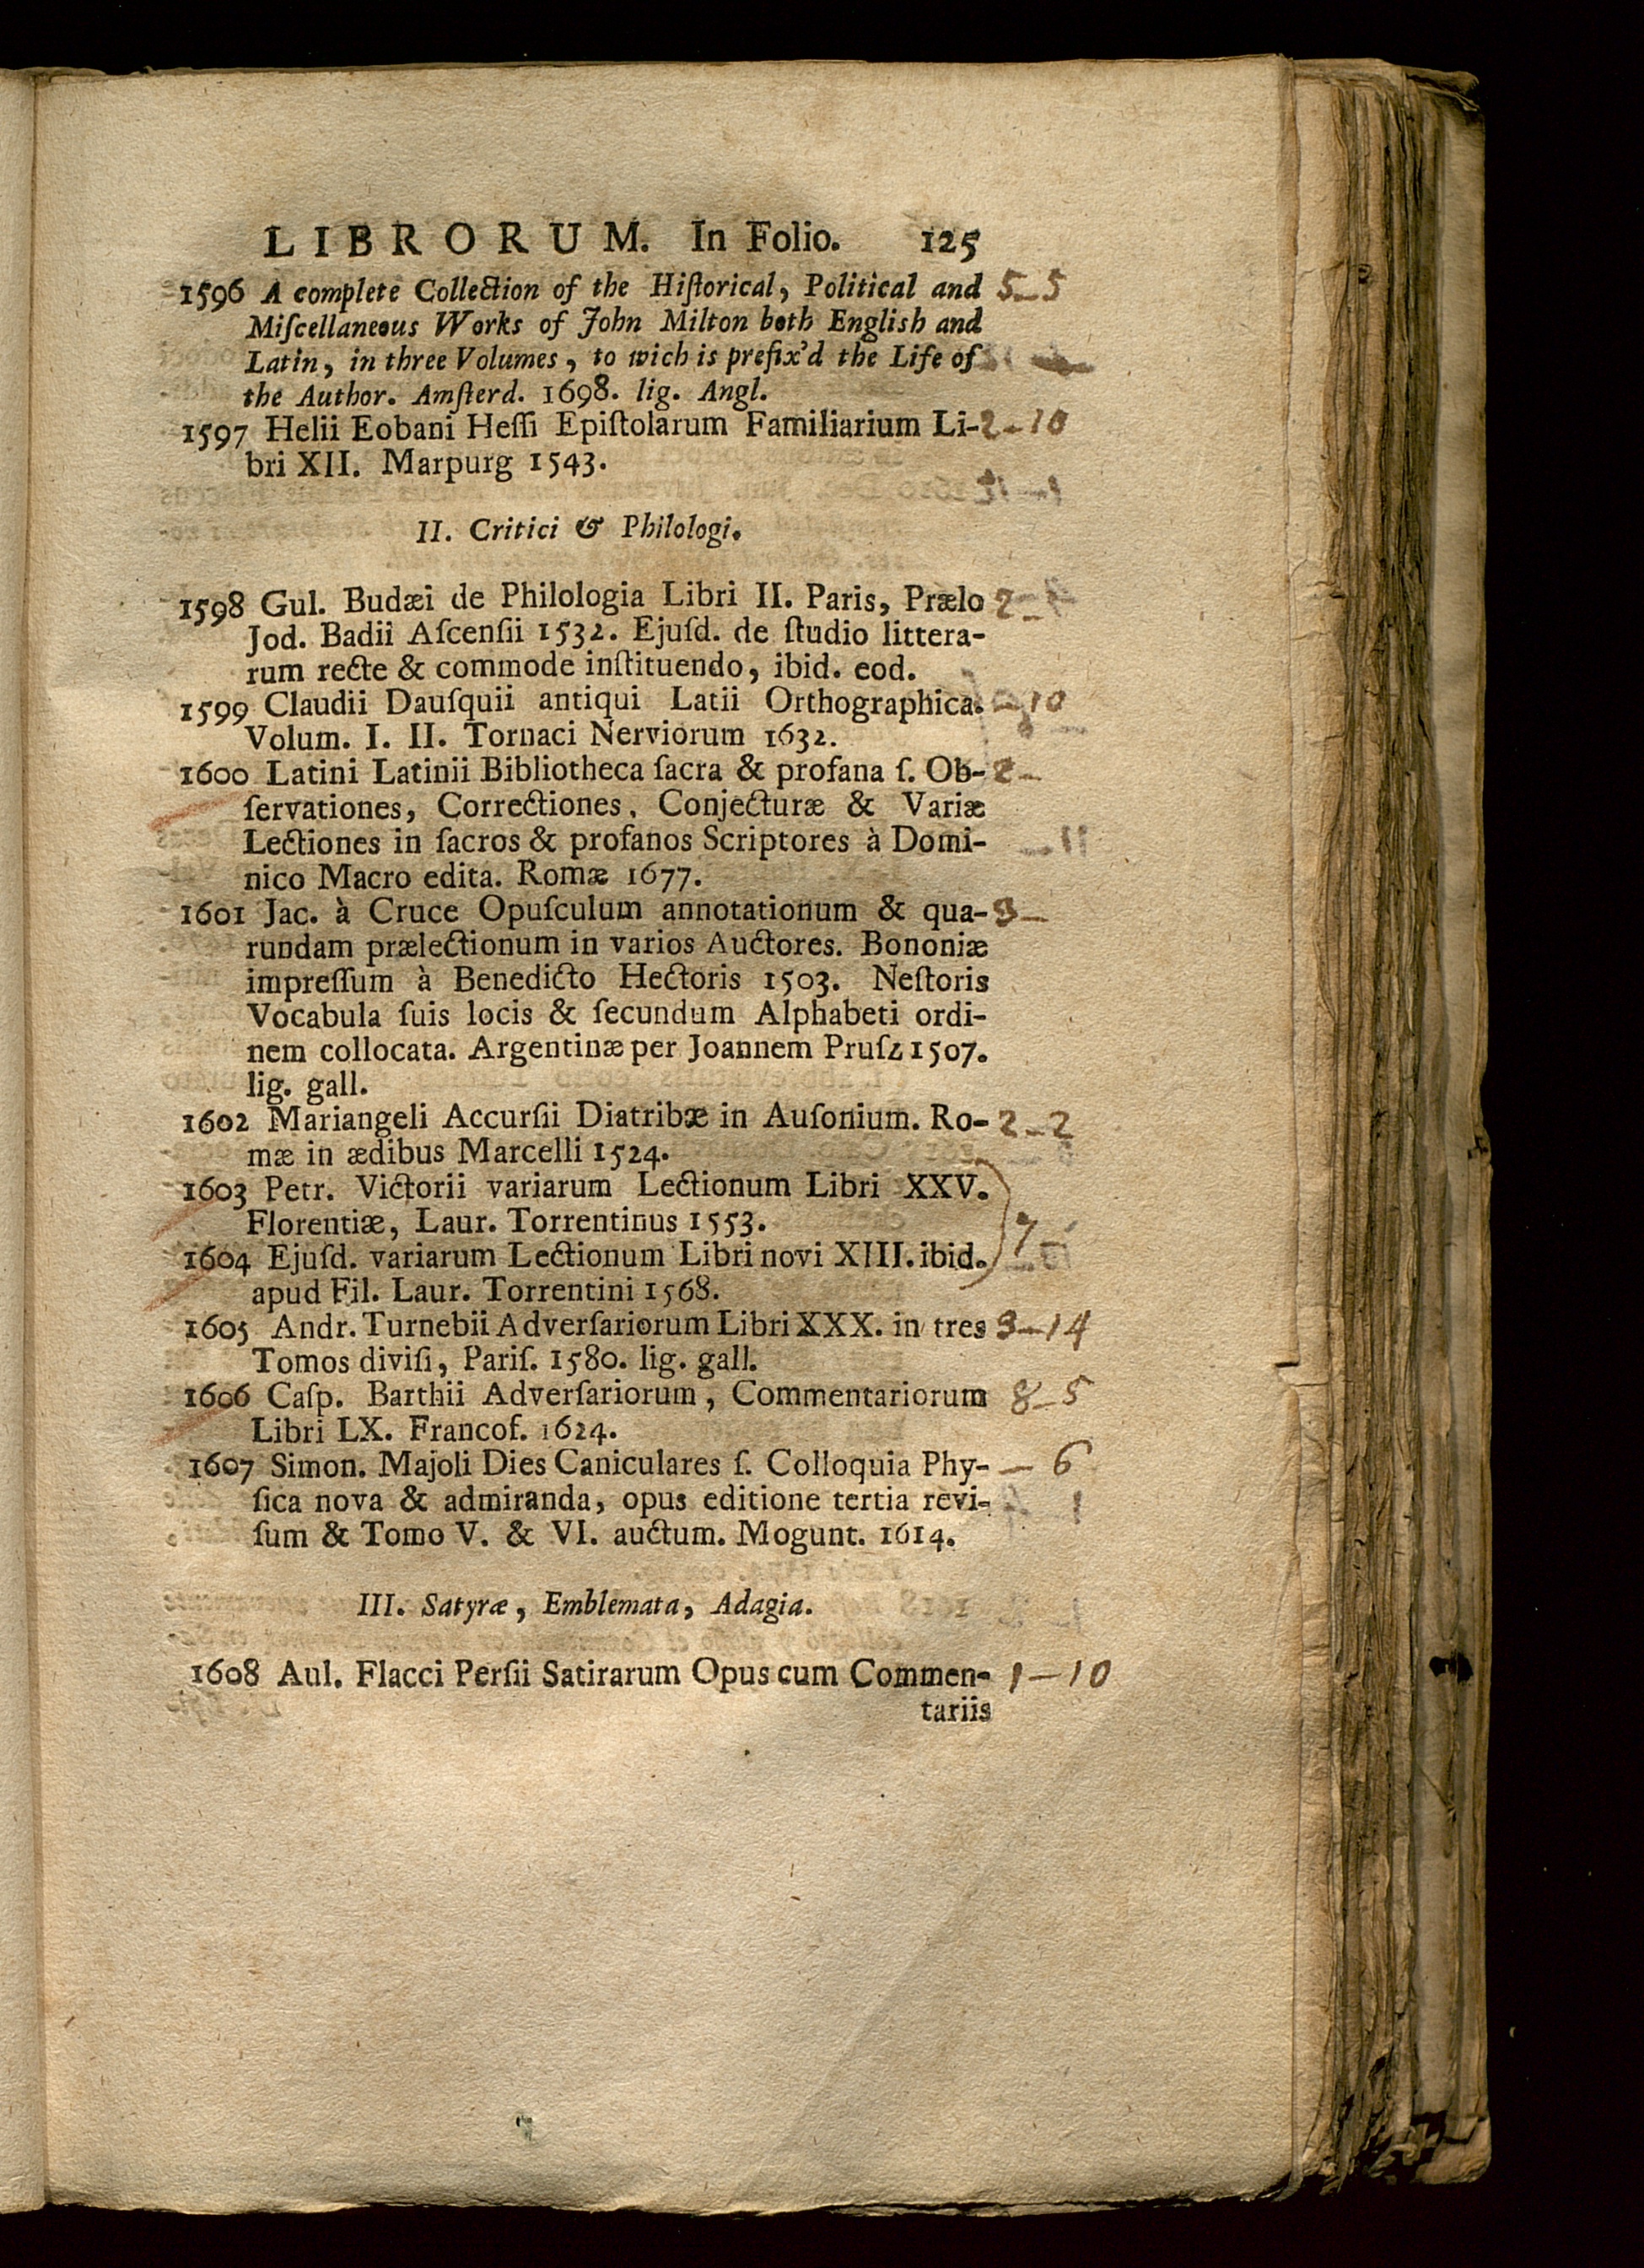 LIBRORUM. In Folio. 125
1596 A complete Collection of the Hiſtorical, Political and 5-5
Miſcellaneous Works of John Milton both English and
Latin, in three Volumes, to wich is prefix'd the Life of
the Author. Amſterd. 1698. lig. Angl.
1597 Helii Eobani Heſſi Epiſtolarum Familiarium Li- 2-10
bri XII. Marpurg 1543.
II. Critici & Philologi.
1598 Gul. Budæi de Philologia Libri II. Paris, Prælo
Jod. Badii Aſcenſii 1532. Ejuſd. de ſtudio littera-
rum recte & commode inſtituendo, ibid. eod.
1599 Claudii Dauſquii antiqui Latii Orthographica. 10
Volum. I. II. Tornaci Nerviorum 1632.
1600 Latini Latinii Bibliotheca ſacra & profana ſ. Ob- 2-
ſervationes, Correctiones, Conjecturæ & Variæ
Lectiones in ſacros & profanos Scriptores à Domi-
nico Macro edita. Romæ 1677.
1601 Jac. à Cruce Opuſculum annotationum & qua- 3-
rundam prælectionum in varios Auctores. Bononiæ
impreſſum à Benedicto Hectoris 1503. Neſtoris
Vocabula ſuis locis & ſecundum Alphabeti ordi-
nem collocata. Argentinæ per Joannem Pruſz 1507.
lig. gall.
1602 Mariangeli Accurſii Diatribæ in Auſonium. Ro- 2-2
mæ in ædibus Marcelli 1524.
1603 Petr. Victorii variarum Lectionum Libri XXV.
Florentiæ, Laur. Torrentinus 1553. 7-
1604 Ejuſd. variarum Lectionum Libri novi XIII. ibid.
apud Fil. Laur. Torrentini 1568.
1605 Andr. Turnebii Adverſariorum Libri XXX. in tres 3-14
Tomos diviſi, Pariſ. 1580. lig. gall.
1606 Caſp. Barthii Adverſariorum, Commentariorum 8-5
Libri LX. Francof. 1624.
1607 Simon. Majoli Dies Caniculares ſ. Colloquia Phy- - 6
ſica nova & admiranda, opus editione tertia revi-
ſum & Tomo V. & VI. auctum. Mogunt. 1614.
III. Satyræ, Emblemata, Adagia.
1608 Aul. Flacci Perſii Satirarum Opus cum Commen- 1-10
tariis